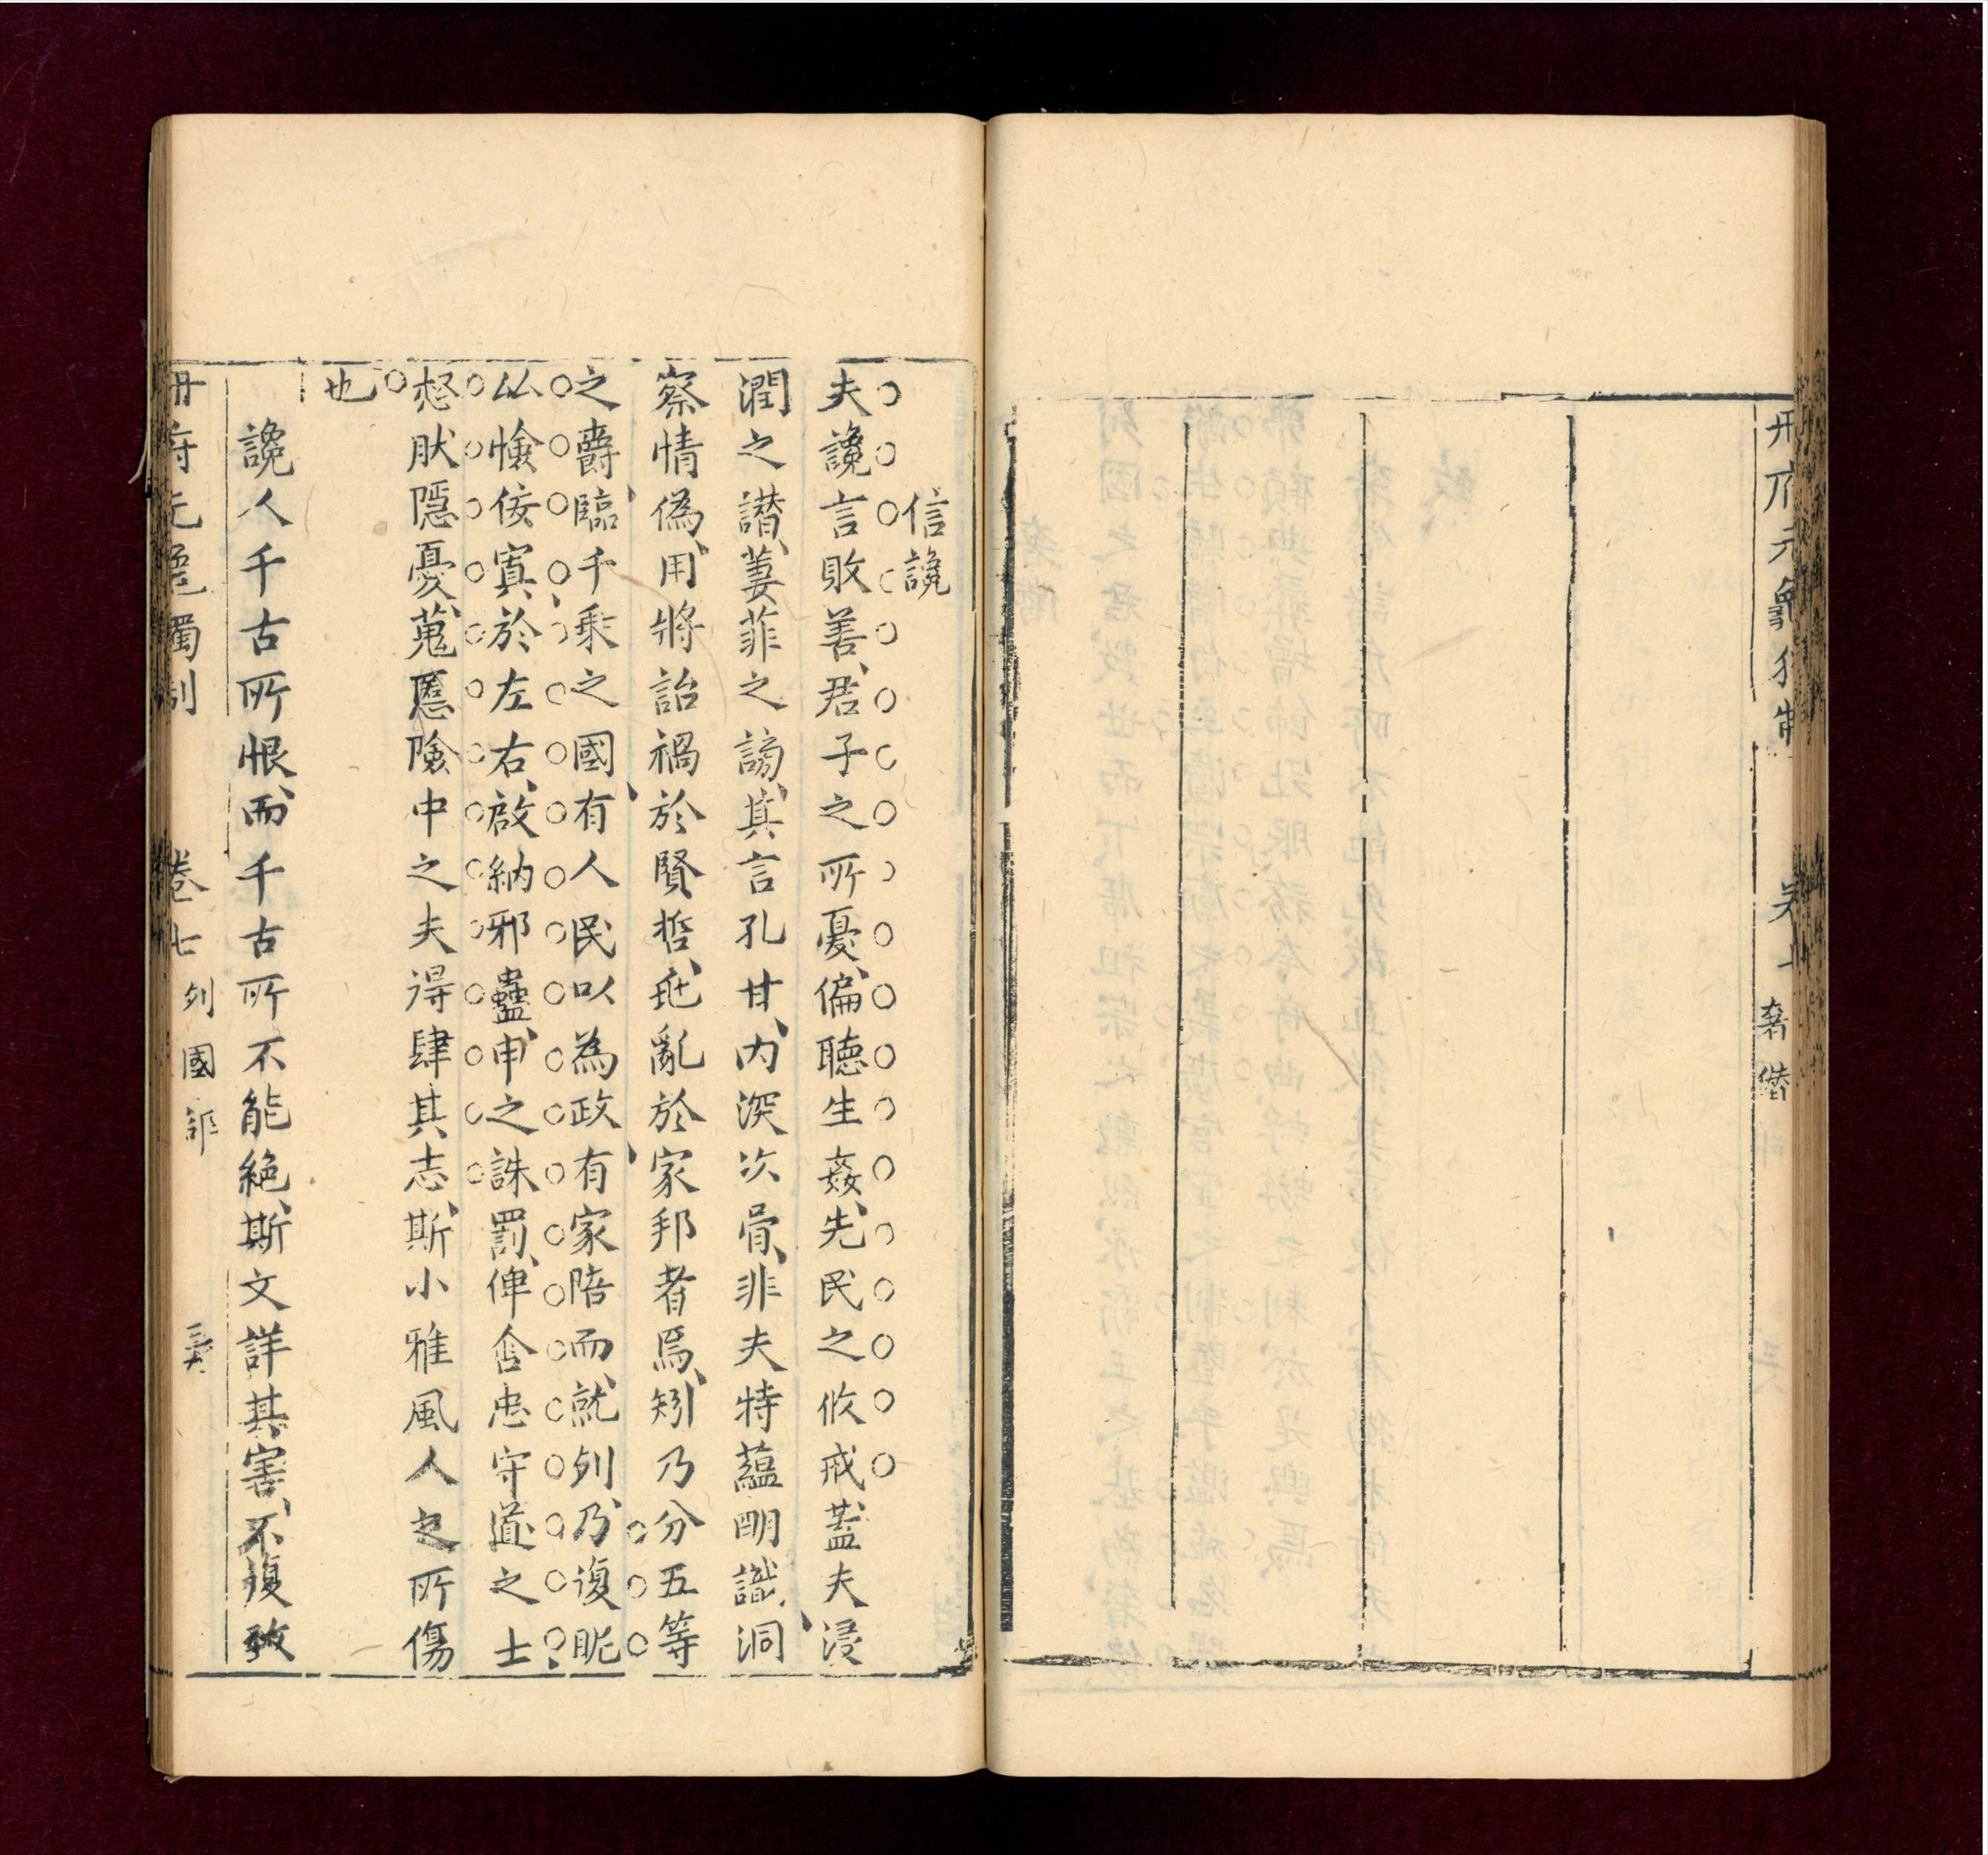 奢僭
信讒
夫讒言敗善、君子之所憂、偏聽生姦、先民之攸戒、蓋夫浸
潤之譖、萋菲之謗、其言孔甘、内深次骨、非夫特蘊明識、洞
察情偽、用將詒禍於賢哲、玭亂於家邦者焉、矧乃分五等
之爵、臨千乘之國、有人民以為政、有家陪而就列、乃復昵
以憸佞、寘於左右、啟納邪蠱、申之誅罰、俾含忠守道之士
懷隱憂、蒐慝險中之夫得肆其志、斯小雅風人之所傷
也
讒人千古所恨、而千古所不能絕、斯文詳其害、不復致
冊府元龜獨制 卷七 列國部